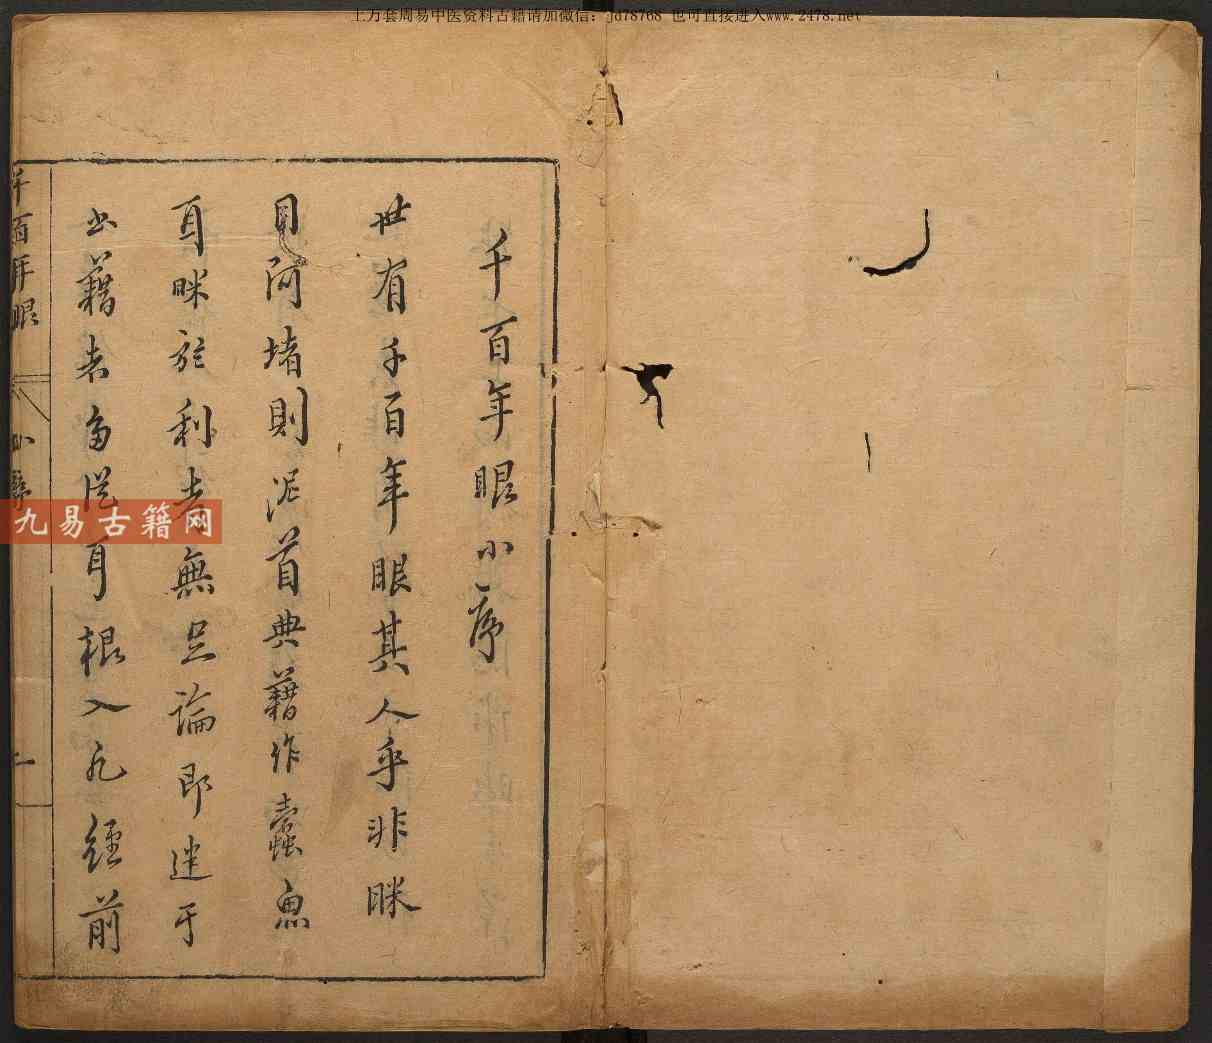 上万套周易中医资料古籍请加微信：jd78768 也可直接进入www.2478.net
千百年眼小序
世有千百年眼其人乎非眯
目阿堵則泥首典藉作蠹魚
耳眯於利者無足論即迷于
書藉者多從耳根入九經前
千百年眼 小序 一
九易古籍网